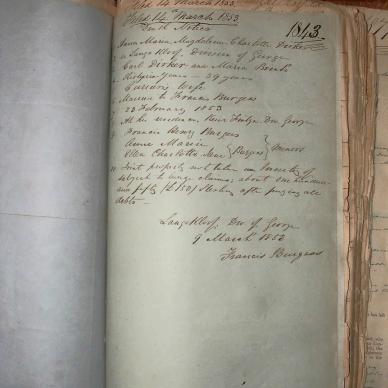 Filed 14 March 1853
Filed 14 March 1853
1843.
Death Notice
Anna Maria Magdalena Charlotte Dirker
Lange Kloof, Division of George
Carl Dirker and Maria
years – 39 years
Wife
Married to Francis Burgess
23 February 1853
At her residence, River, Div George
Francis Henry Burgess
Annie Maria
Ellen Charlotte Jane } Burgess } minors
Joint property not taken an Inventory of
subject to large claims about one hundred
and fifty (£150) Sterling after paying all
debts –
Lange Kloof, Div of George
9 March 1853
Francis Burgess